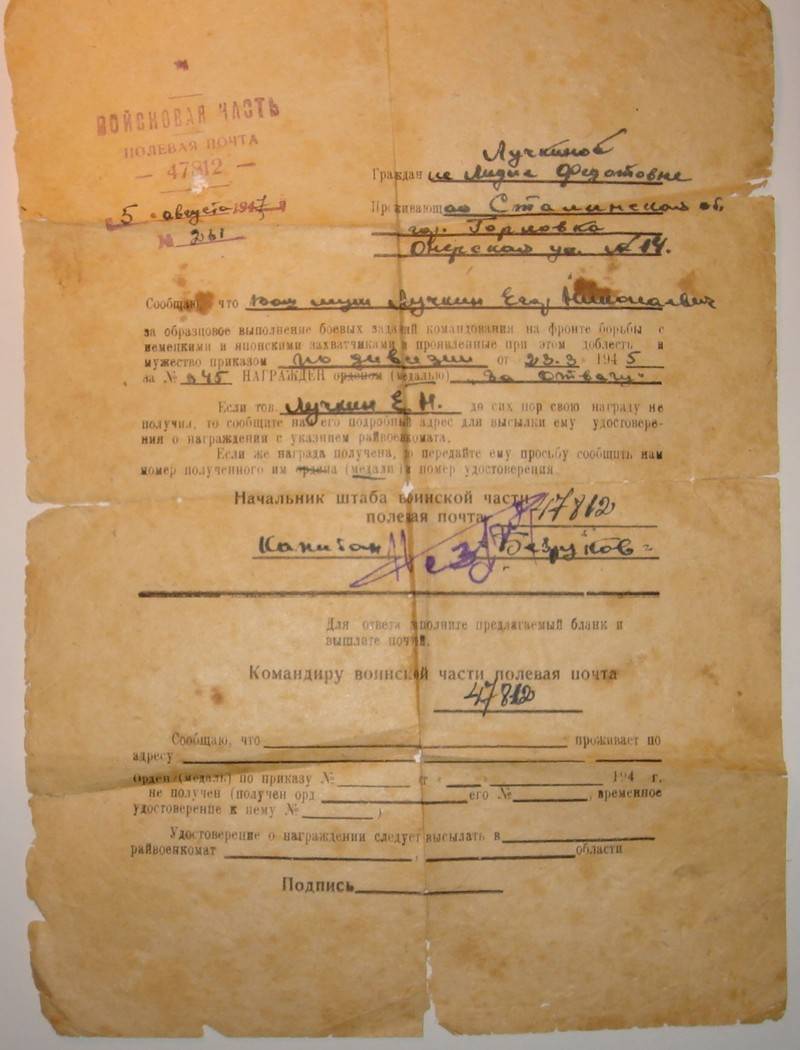 ВОЙСКОВАЯ ЧАСТЬ
ПОЛЕВАЯ ПОЧТА
— 47812 —
5 августа 1947
№ 261
Лучкиной
Граждан ке Лидие Федотовне
Проживающ ая Сталинская об.
гор. Горловка
ул. № 14.
Сообщаю, что Ваш муж Лучкин Егор Николаевич
за образцовое выполнение боевых заданий командования на фронте борьбы с
немецкими и японскими захватчиками и проявленные при этом доблесть и
мужество приказом по дивизии от 23.3 1945
за № 045 НАГРАЖДЕН орденом (медалью) „За Отвагу"
Если тов. Лучкин Е. Н. до сих пор свою награду не
получил, то сообщите нам его подробный адрес для высылки ему удостовере-
ния о награждении с указанием райвоенкомата.
Если же награда получена, то передайте ему просьбу сообщить нам
номер полученного им ордена (медали) и номер удостоверения.
Начальник штаба воинской части
полевая почта 47812
Капитан Безруков
Для ответа заполните предлагаемый бланк и
вышлите почтой.
Командиру воинской части полевая почта
47812
Сообщаю, что проживает по
адресу
Орден (медаль) по приказу № от 194 г.
не получен (получен орд его № , временное
удостоверение к нему № )
Удостоверение о награждении следует высылать в
райвоенкомат , области
Подпись